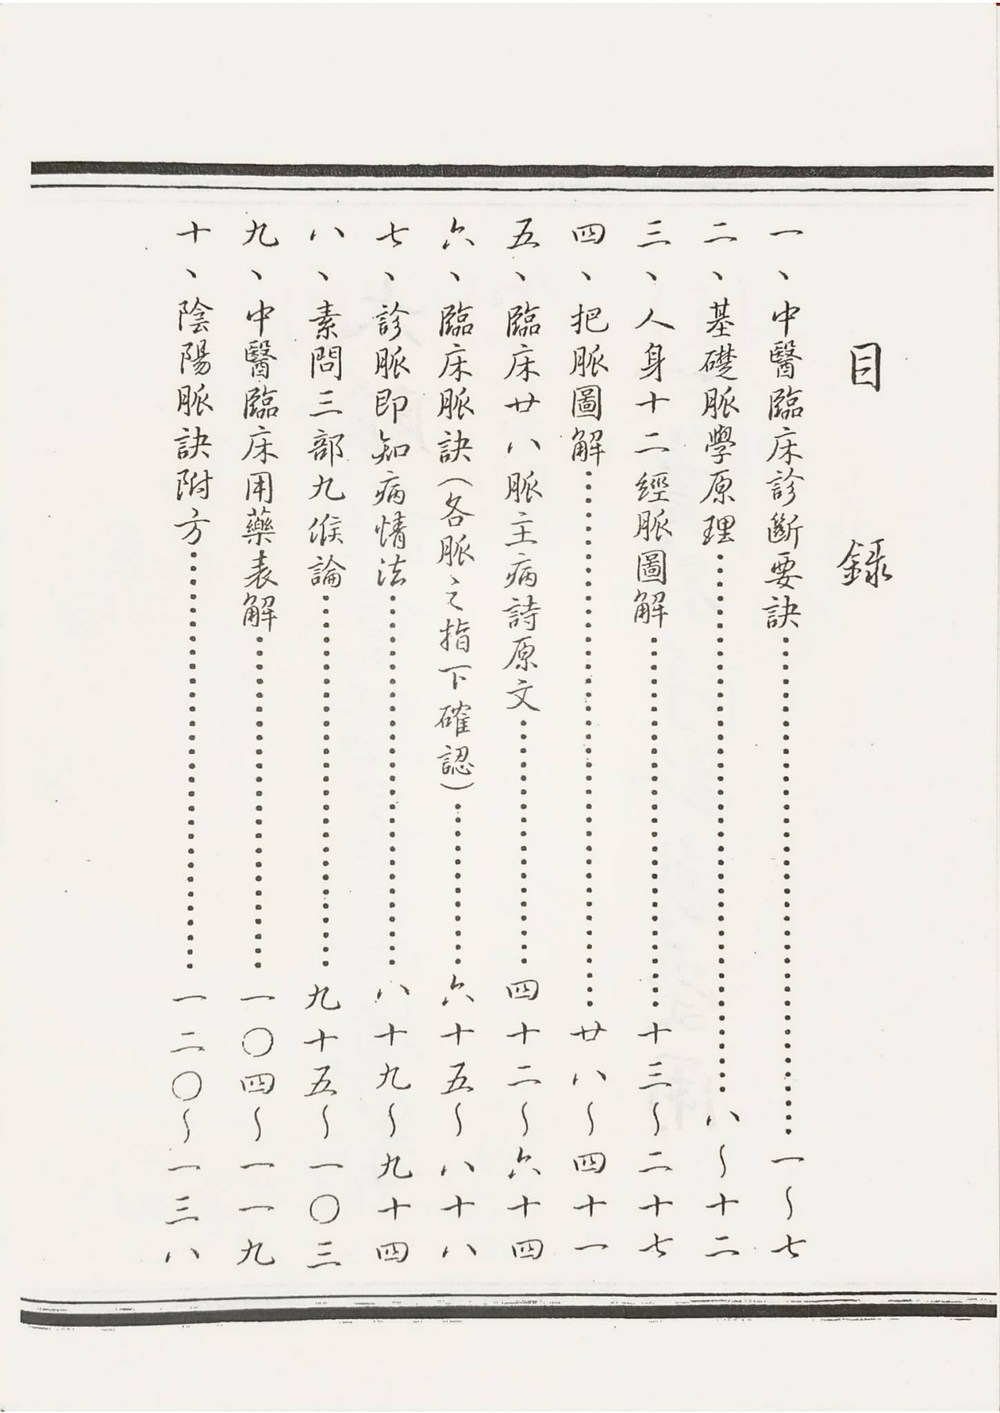 目錄
一、中醫臨床診斷要訣……………一～七
二、基礎脈學原理……………八～十二
三、人身十二經脈圖解……………十三～二十七
四、把脈圖解……………廿八～四十一
五、臨床廿八脈主病詩原文……………四十二～六十四
六、臨床脈訣(各脈之指下確認)……………六十五～八十八
七、診脈即知病情法……………八十九～九十四
八、素問三部九候論……………九十五～一〇三
九、中醫臨床用藥表解……………一〇四～一一九
十、陰陽脈訣附方……………一二〇～一三八